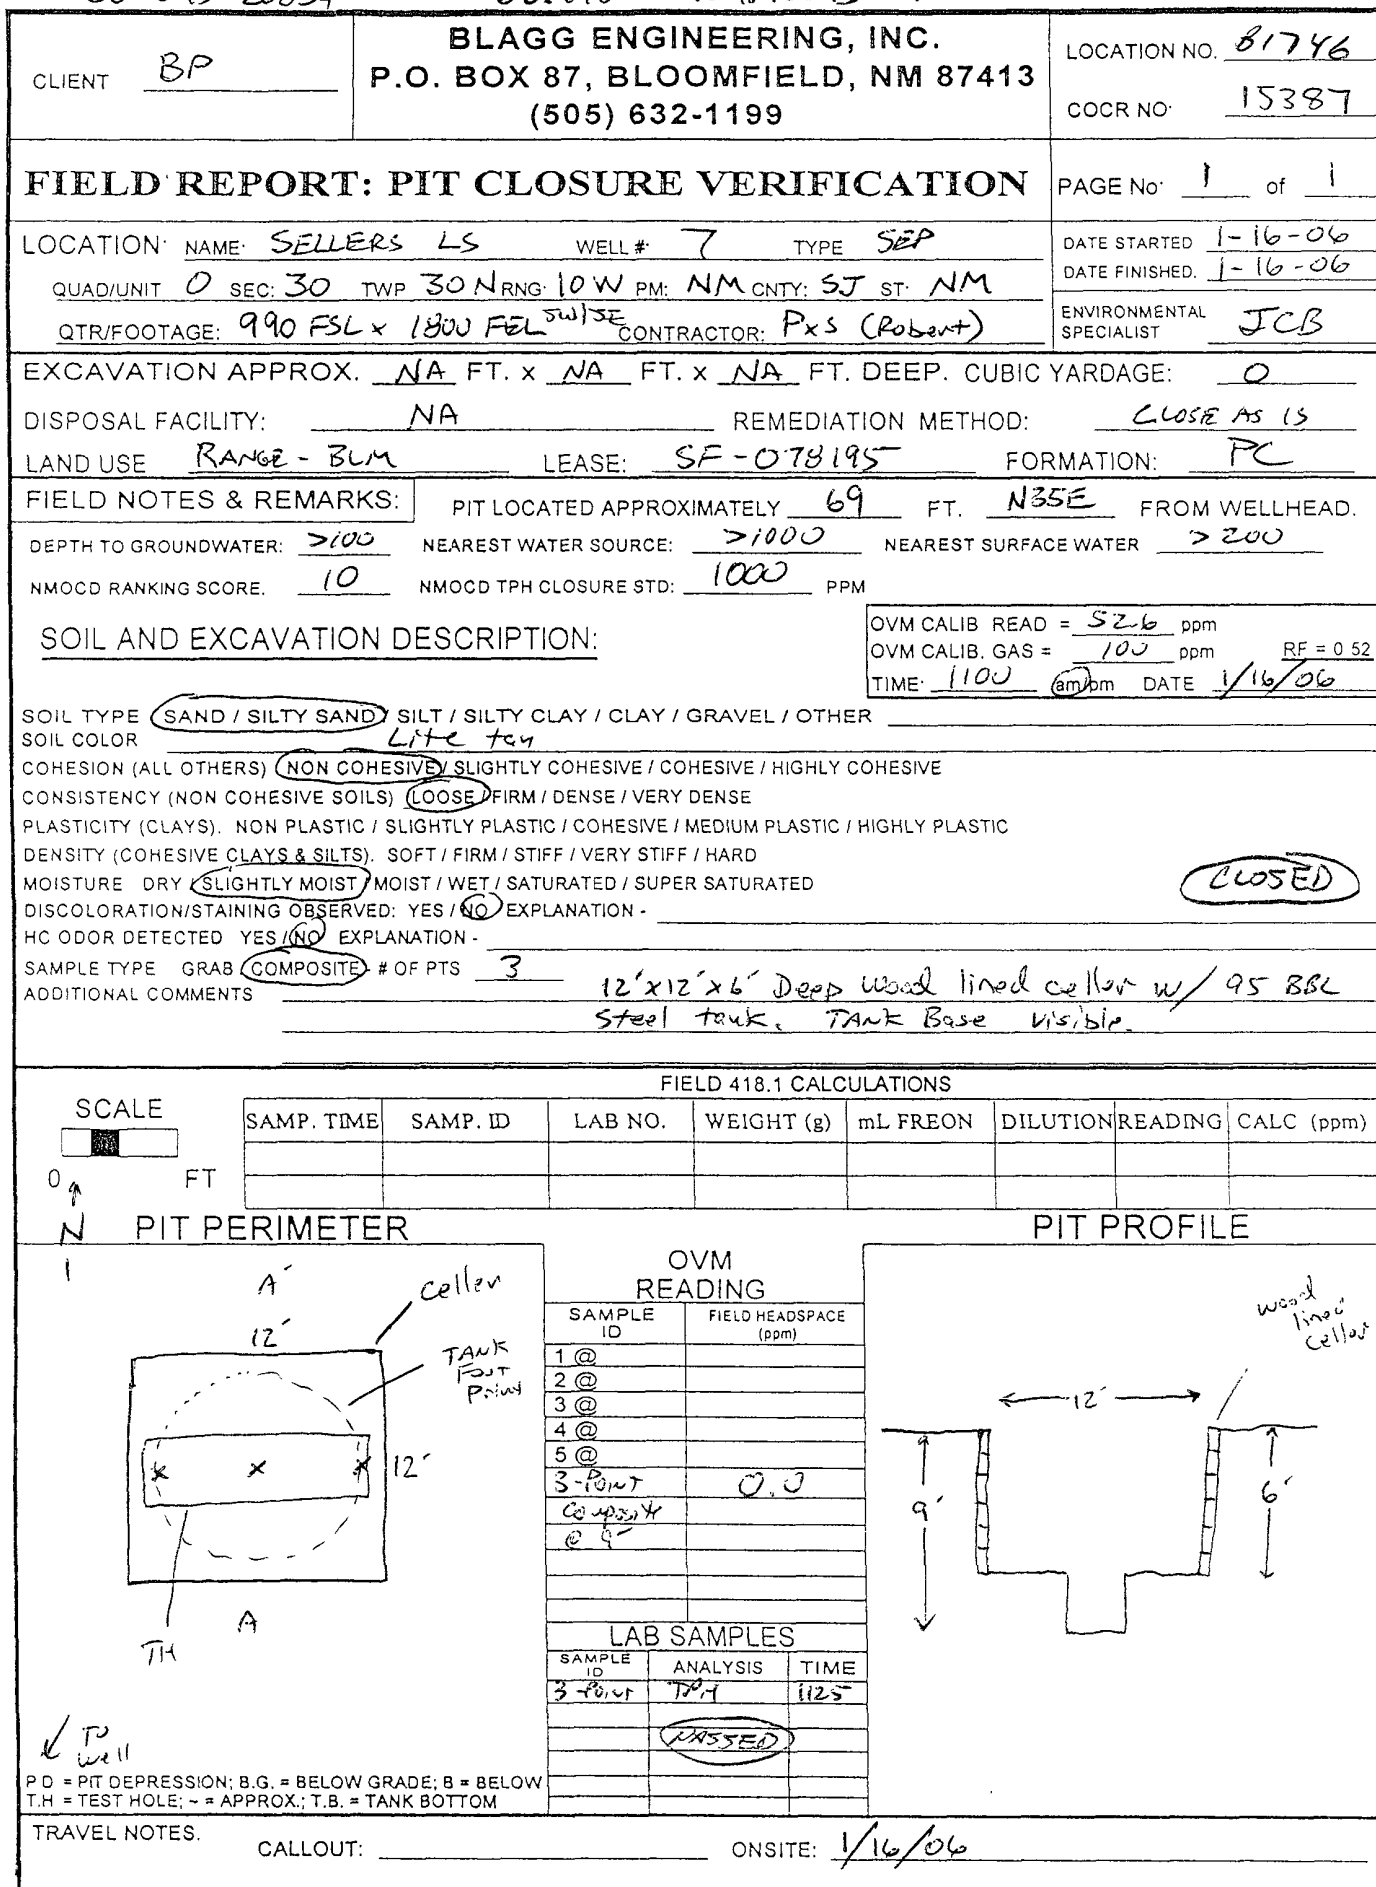 BLAGG ENGINEERING, INC.
P.O. BOX 87, BLOOMFIELD, NM 87413
(505) 632-1199
CLIENT BP
LOCATION NO. B1746
COCR NO. 15387
FIELD REPORT: PIT CLOSURE VERIFICATION
PAGE No. 1 of 1
LOCATION: NAME: SELLERS LS WELL #: 7 TYPE SEP
QUAD/UNIT O SEC: 30 TWP 30N RNG: 10W PM: NM CNTY: SJ ST: NM
QTR/FOOTAGE: 990 FSL x 1800 FEL SW/SE CONTRACTOR: PxS (Robert)
DATE STARTED 1-16-06
DATE FINISHED. 1-16-06
ENVIRONMENTAL SPECIALIST JCB
EXCAVATION APPROX. NA FT. x NA FT. x NA FT. DEEP. CUBIC YARDAGE: 0
DISPOSAL FACILITY: NA REMEDIATION METHOD: CLOSE AS IS
LAND USE RANGE - BLM LEASE: SF-078195 FORMATION: PC
FIELD NOTES & REMARKS: PIT LOCATED APPROXIMATELY 69 FT. N35E FROM WELLHEAD.
DEPTH TO GROUNDWATER: >100 NEAREST WATER SOURCE: >1000 NEAREST SURFACE WATER >200
NMOCD RANKING SCORE. 10 NMOCD TPH CLOSURE STD: 1000 PPM
SOIL AND EXCAVATION DESCRIPTION:
OVM CALIB READ = 52.6 ppm
OVM CALIB. GAS = 100 ppm RF = 0 52
TIME: 1100 am/pm DATE 1/16/06
SOIL TYPE SAND / SILTY SAND / SILT / SILTY CLAY / CLAY / GRAVEL / OTHER
SOIL COLOR Lite tan
COHESION (ALL OTHERS) NON COHESIVE / SLIGHTLY COHESIVE / COHESIVE / HIGHLY COHESIVE
CONSISTENCY (NON COHESIVE SOILS) LOOSE / FIRM / DENSE / VERY DENSE
PLASTICITY (CLAYS). NON PLASTIC / SLIGHTLY PLASTIC / COHESIVE / MEDIUM PLASTIC / HIGHLY PLASTIC
DENSITY (COHESIVE CLAYS & SILTS). SOFT / FIRM / STIFF / VERY STIFF / HARD
MOISTURE DRY / SLIGHTLY MOIST / MOIST / WET / SATURATED / SUPER SATURATED
CLOSED
DISCOLORATION/STAINING OBSERVED: YES / NO EXPLANATION -
HC ODOR DETECTED YES / NO EXPLANATION -
SAMPLE TYPE GRAB / COMPOSITE - # OF PTS 3
ADDITIONAL COMMENTS 12'x12'x6' Deep Wood lined cellar w/ 95 BBL
Steel tank. TANK Base visible.
FIELD 418.1 CALCULATIONS
SCALE
0 FT
N
SAMP. TIME SAMP. ID LAB NO. WEIGHT (g) mL FREON DILUTION READING CALC (ppm)
PIT PERIMETER
A'
cellar
12'
TANK
Foot
Print
12'
A
TH
To
well
P D = PIT DEPRESSION; B.G. = BELOW GRADE; B = BELOW
T.H = TEST HOLE; ~ = APPROX.; T.B. = TANK BOTTOM
OVM
READING
SAMPLE ID FIELD HEADSPACE (ppm)
1 @
2 @
3 @
4 @
5 @
3-Point 0.0
Composite
@ 9'
LAB SAMPLES
SAMPLE ID ANALYSIS TIME
3-Point TPH 1125
PASSED
PIT PROFILE
wood
lined
cellar
12'
9'
6'
TRAVEL NOTES. CALLOUT: ONSITE: 1/16/06